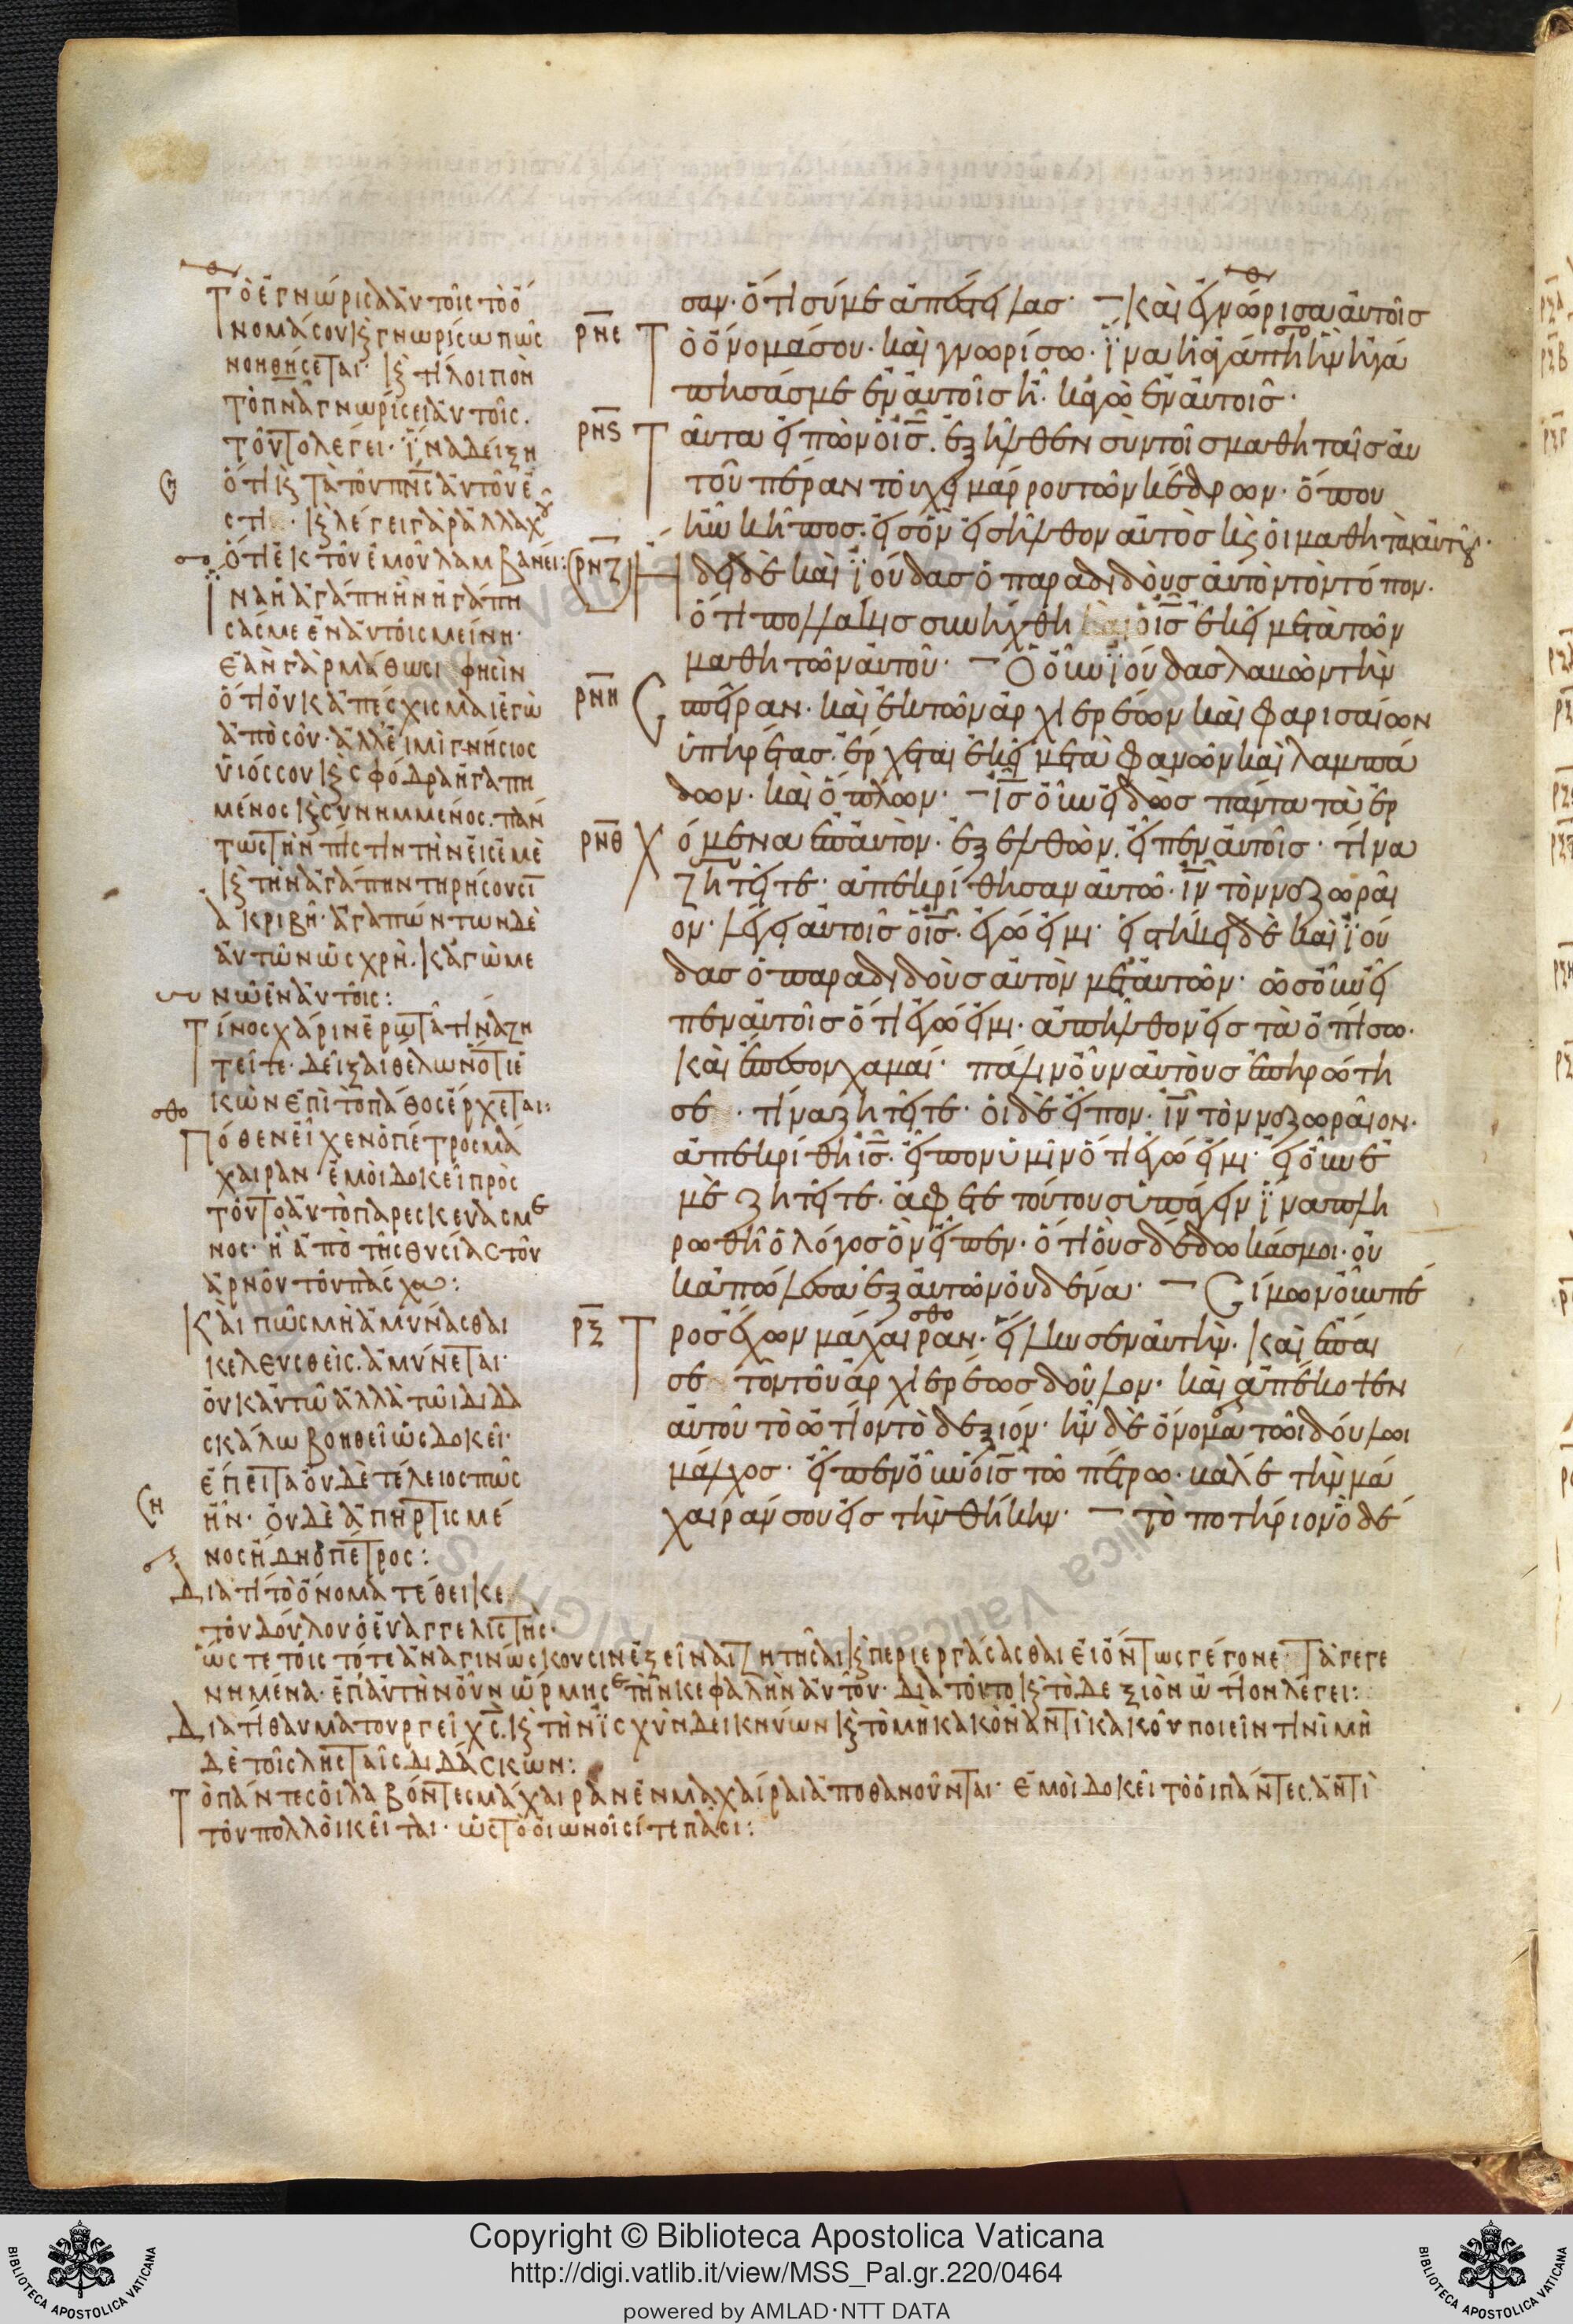 Τὸ ἐγνώρισα αὐτοῖς τὸ ὄ
νομά σου κ̀ γνωρίσω πῶς
νοηθήσεται· κ̀ τί λοιπὸν
τὸ π̅ν̅α̅ γνωρίσει αὐτοῖς.
τοῦτο λέγει· ἵνα δείξη
ὅτι κ̀ τὰ τοῦ π̅ν̅ς̅ αὐτοῦ ἐ
στι· κ̀ λέγει γὰρ ἀλλαχοῦ
ὅτι ἐκ τοῦ ἐμοῦ λαμβάνει:
Ἵνα ἡ ἀγάπη ἣν ἠγάπη
σάς με ἐν αὐτοῖς μείνη·
ἐὰν γὰρ μάθωσι φησὶν
ὅτι οὐκ ἀπέσχισμαι ἐγὼ
ἀπὸ σοῦ· ἀλλ' εἰμὶ γνήσιος
υἱός σου κ̀ σφόδρα ἠγαπη
μένος κ̀ συνημμένος. πάν
τως τὴν πίστιν τὴν εἰς ἐμὲ
κ̀ τὴν ἀγάπην τηρήσουσι
ἀκριβῆ· ἀγαπώντων δὲ
αὐτῶν ὡς χρὴ. κἀγὼ με
νῶ ἐν αὐτοῖς:
Τίνος χάριν ἐρωτᾶ τίνα ζη
τεῖτε· δεῖξαι θέλων ὅτι ἑ
κὼν ἐπὶ τὸ πάθος ἔρχεται:
Πόθεν εἶχεν ὁ πέτρος μά
χαιραν· ἐμοὶ δοκεῖ πρὸς
τοῦτο αὐτὸ παρεσκευασμέ
νος· ἢ ἀπὸ τῆς θυσίας τοῦ
ἀρνοῦ τοῦ πάσχα:
Καὶ πῶς μὴ ἀμύνασθαι
κελευσθεὶς. ἀμύνεται·
οὐκ αὐτῶ ἀλλὰ τῶι διδα
σκάλω βοηθεῖ ὡς δοκεῖ·
ἔπειτα οὐδὲ τέλειος πῶς
ἦν· οὐδὲ ἀπηρτισμέ
νος ἤδη ὁ πέτρος:
Διατί τὸ ὄνομα τέθεικε
τοῦ δούλου ὁ εὐαγγελιστής·
ὥστε τοῖς τότε ἀναγινώσκουσιν ἐξεῖναι ζητῆσαι κ̀ περιεργάσασθαι εἰ ὄντως γέγονε· τὰ γεγε
νημένα· ἐπ' αὐτὴν οὖν ὥρμησε τὴν κεφαλὴν αὐτοῦ· διὰ τοῦτο κ̀ τὸ δεξιὸν ὠτίον λέγει:
Διατί θαυματουργεῖ χ̅ς̅. κ̀ τὴν ἰσχὺν δεικνύων κ̀ τὸ μὴ κακὸν ἀντὶ κακοῦ ποιεῖν τινὶ μη
δὲ τοῖς λησταῖς διδάσκων:
Τὸ πάντες οἱ λαβόντες μάχαιραν ἐν μαχαίραι ἀποθανοῦνται· ἐμοὶ δοκεῖ τὸ οἱ πάντες. ἀντὶ
τοῦ πολλοὶ κεῖται· ὡς τὸ οἱωνοῖσί τε πᾶσι:
σαν· ὅτι σύ με ἀπέστειλας· – Καὶ ἐγνώρισα αὐτοῖς
ρνε Τὸ ὄνομά σου· καὶ γνωρίσω· ἵνα ἡ ἀγάπη ἣν ἠγά
πησάς με ἐν αὐτοῖς ἦ· κἀγὼ ἐν αὐτοῖς·
ρνς Ταῦτα εἰπὼν ὁ ἰ̅ς̅. ἐξῆλθεν σὺν τοῖς μαθηταῖς αὐ
τοῦ πέραν τοῦ χειμάρρου τῶν κέδρων· ὅπου
ἦν κῆπος. εἰς ὃν εἰσῆλθον αὐτὸς κ̀ οἱ μαθηταὶ αὐτοῦ·
ρνζ Ἤδει δὲ καὶ ἰούδας ὁ παραδιδοὺς αὐτὸν τὸν τόπον.
ὅτι πολλάκις συνήχθη καὶ ὁ ἰ̅ς̅ ἐκεῖ μετὰ τῶν
μαθητῶν αὐτοῦ· – Ὁ οὖν ἰούδας λαβὼν τὴν
ρνη Σπεῖραν· καὶ ἐκ τῶν ἀρχιερέων καὶ φαρισαίων
ὑπηρέτας. ἔρχεται ἐκεῖ μετὰ φανῶν καὶ λαμπά
δων. καὶ ὅπλων· – ἰ̅ς̅ οὖν εἰδὼς πάντα τὰ ἐρ
ρνθ Χόμενα ἐπ' αὐτὸν· ἐξελθὼν. εἶπεν αὐτοῖς· τίνα
ζητεῖτε· ἀπεκρίθησαν αὐτῶ· ἰ̅ν̅ τὸν ναζωραῖ
ον· λέγει αὐτοῖς ὁ ἰ̅ς̅. ἐγώ εἰμι· εἱστήκει δὲ καὶ ἰού
δας ὁ παραδιδοὺς αὐτὸν μετ' αὐτῶν· ὡς οὖν εἶ
πεν αὐτοῖς ὅτι ἐγώ εἰμι· ἀπῆλθον εἰς τὰ ὀπίσω·
καὶ ἔπεσον χαμαί· πάλιν οὖν αὐτοὺς ἐπηρώτη
σε· τίνα ζητεῖτε· οἱ δὲ εἶπον· ἰ̅ν̅ τὸν ναζωραῖον·
ἀπεκρίθη ἰ̅ς̅. εἶπον ὑμῖν ὅτι ἐγώ εἰμι· εἰ οὖν ἐ
μὲ ζητεῖτε· ἄφετε τούτους ὑπάγειν ἵνα πλη
ρωθῆ ὁ λόγος ὃν εἶπεν· ὅτι οὓς δέδωκάς μοι· οὐ
κ ἀπώλεσα ἐξ αὐτῶν οὐδένα· – Σίμων οὖν πέ
ρξ Τρος ἔχων μάχαιραν· εἵλκυσεν αὐτὴν. καὶ ἔπαι
σε τὸν τοῦ ἀρχιερέως δοῦλον· καὶ ἀπέκοψεν
αὐτοῦ τὸ ὠτίον τὸ δεξιόν· ἦν δὲ ὄνομα τῶι δούλωι
μάλχος· εἶπεν οὖν ὁ ἰ̅ς̅ τῶ πέτρω· βάλε τὴν μά
χαιράν σου εἰς τὴν θήκην· – τὸ ποτήριον ὃ δέ
Copyright © Biblioteca Apostolica Vaticana
http://digi.vatlib.it/view/MSS_Pal.gr.220/0464
powered by AMLAD·NTT DATA
BIBLIOTECA APOSTOLICA VATICANA
BIBLIOTECA APOSTOLICA VATICANA